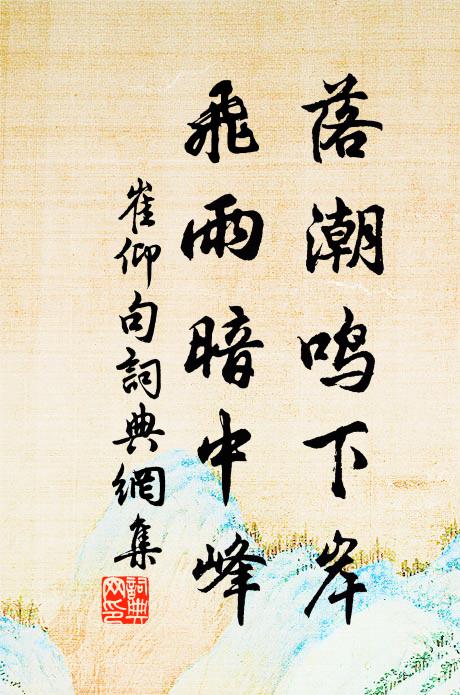 落潮鸣下岸
飛雨暗中峰
崔仰句詞典網集